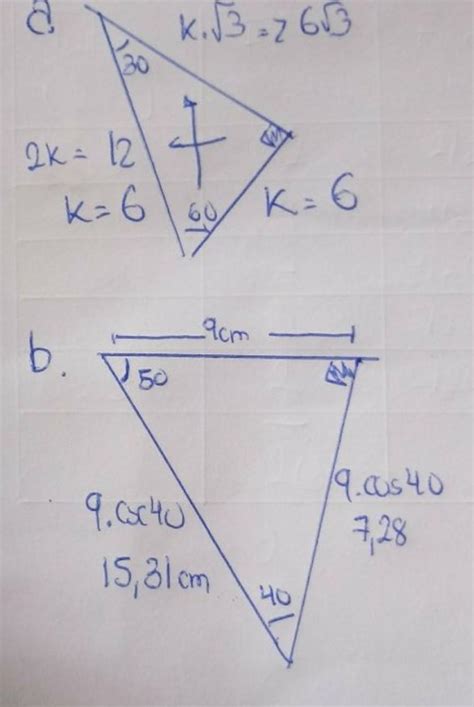 a.
k.√3 = 6√3
30
2k = 12
k = 6
60
k = 6
b.
9cm
50
9.csc40
15,31cm
40
9.cos40
7,28